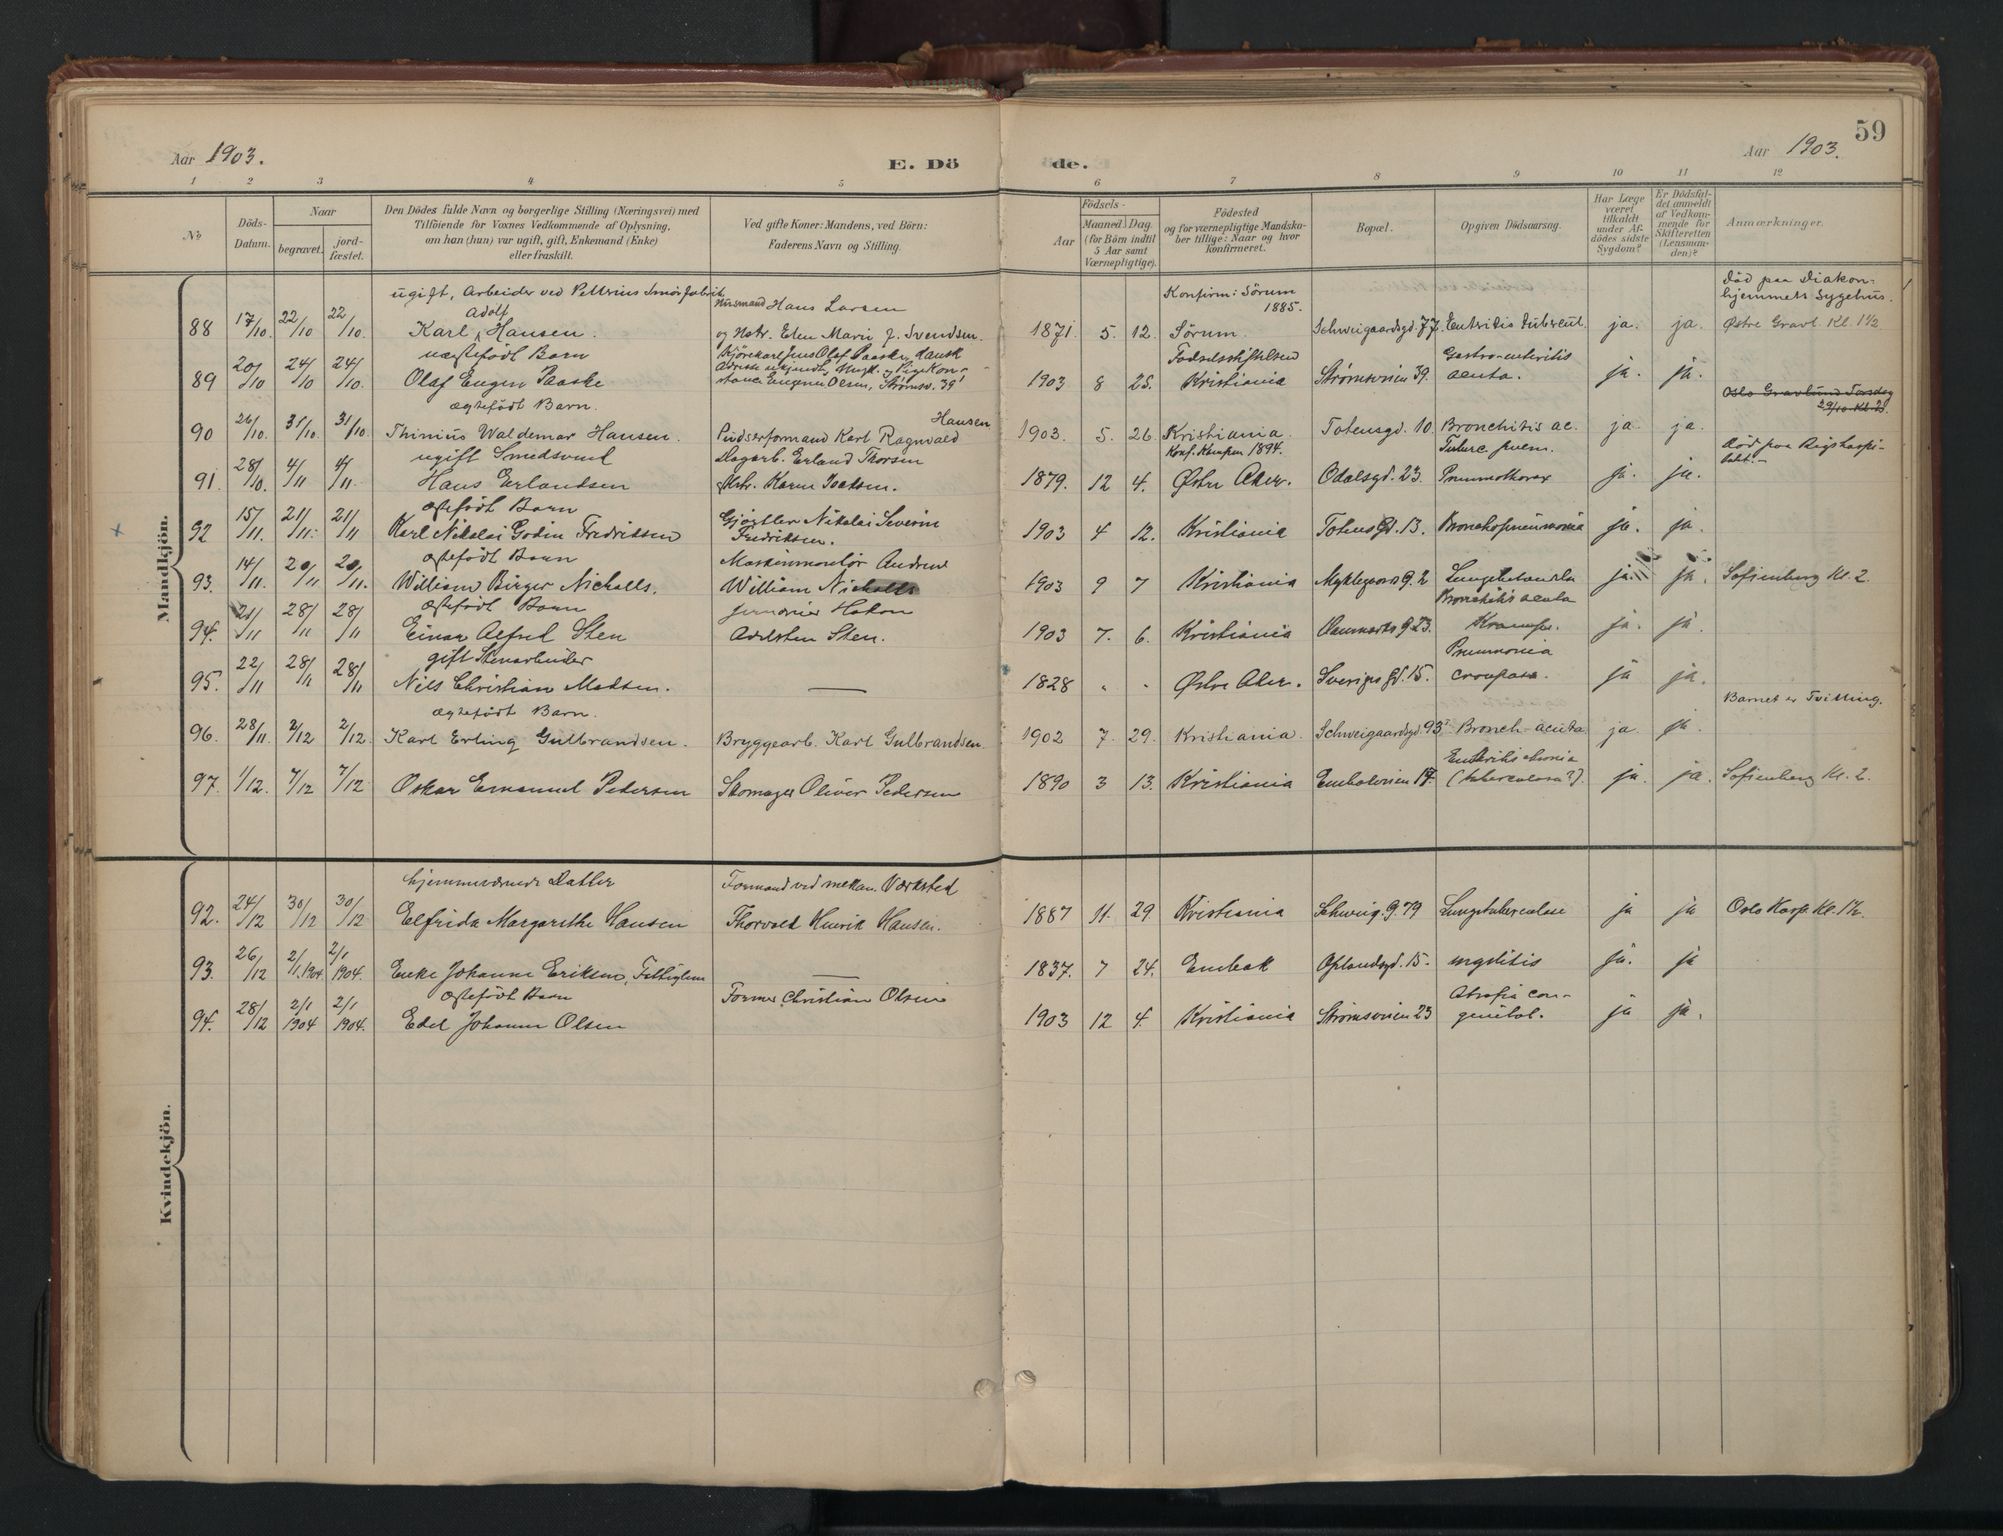 59
Aar 1903.
E. Dö
de.
Aar 1903.
1 2 3 4 5 6 7 8 9 10 11 12
No
Döds-Datum.
Naar
begravet.
jord-fæstet.
Den Dödes fulde Navn og borgerlige Stilling (Næringsvei) med
Tilföiende for Voxnes Vedkommende af Oplysning,
om han (hun) var ugift, gift, Enkemand (Enke)
eller fraskilt.
Ved gifte Koner: Mandens, ved Börn:
Faderens Navn og Stilling.
Födsels-
Aar
Maaned. Dag.
(for Börn indtil
5 Aar samt
Værnepligtige).
Födested
og for værnepligtige Mandska-
ber tillige: Naar og hvor
konfirmeret.
Bopæl.
Opgiven Dödsaarsag.
Har Læge
været
tilkaldt
under Af-
dödes sidste
Sygdom?
Er Dödsfal-
det anmeldt
af Vedkom-
mende for
Skifteretten
(Lensman-
den)?
Anmærkninger.
Mandkjön.
ugift, Arbeider ved Pellerins Smørfabrik Husmand Hans Larsen Konfirm: Sörum 1885. Död paa Diakon-
hjemmets Sygehus.
88 17/10. 22/10 22/10. Karl Adolf Hansen. og Hstr. Elen Mari J. Svendsen. 1871. 5. 12. Sörum. Schweigaardsgd. 77. Entritis tubercul. ja. ja. Østre Gravl. Kl. 1½
uægtefödt Barn Kjörekarl Jens Olaf Paaske, dansk Fødselsstiftelsen Gastro-enteritis
89 20/10 24/10 24/10. Olaf Eugen Paaske Adresse ukjendt, Ungk. og Pige Kon-
stance Eugenie Olsen, Strømsv. 39 1903 8 25. Kristiania Strømsveien 39. acuta. ja. ja.
ægtefödt Barn. Hansen Oslo Gravlund Torsdag
29/10. Kl. 2.
90 26/10. 31/10. 31/10. Thinius Waldemar Hansen. Pudserformand Karl Ragnvald 1903. 5. 26. Kristiania. Totensgd. 10. Bronchitis ac. ja. ja.
ugift Smedsvend Dagarb. Erland Thorsen Konf. Kampen 1894. Tuberc. pulm. Död paa Rigshospi-
talet.-
91. 28/10. 4/11 4/11. Hans Erlandsen Hstr. Karen 1879. 12 4. Østre Aker. Odalsgd. 23. Pneumothorax ja. ja.
ægtefödt Barn Gjørtler Nikolai Severin
92 15/11. 21/11. 21/11 Karl Nikolai Godin Fredriksen Fredriksen. 1903 4 12. Kristiania Totens Gd. 13. Bronchopneumonia ja. ja.
ægtefödt Barn Maskinmontør Andrew
93. 14/11. 20/11 20/11. William Birger Nicholls. William Nicholls 1903 9 7 Kristiania Myklegaards g. 2 ja. ja. Sofienberg Kl. 2.
ægtefödt Barn Hakon Bronchitis acuta
94. 21/11 28/11 28/11 Einar Alfred Sten Adelsten Sten. 1903 7. 6. Kristiania Danmarks g. 23. Krampe. ja. ja.
gift Stenarbeider Pneumonia
95. 22/11 28/11 28/11 Nils Christian Madsen. — 1828 " - Østre Aker. Sverigs gd. 15. crouposa. ja ja.
ægtefödt Barn. Barnet er Tvilling.
96. 28/11. 2/12 2/12. Karl Erling Gulbrandsen. Bryggearb. Karl Gulbrandsen 1902 7. 29. Kristiania. Schweigaardsgd. 93 Bronch. acuta ja. ja.
Enteritis chronica
97. 1/12. 7/12 7/12 Oskar Emanuel Pedersen Skomager Oliver Pedersen 1890 3 13. Kristiania Enebakveien 17. (tuberculosa?). ja. ja. Sofienberg Kl. 2.
Kvindekjön.
hjemmeværende Datter Formand ved mekan. Værksted
92. 24/12 30/12 30/12 Elfrida Margarethe Hansen Thorvald Henrik Hansen. 1887 11. 29. Kristiania Schweig. g. 79 Lungetuberculose ja ja Oslo Kap. Kl. 1½.
93. 26/12 2/1. 1904 2/1 1904. Enke Johanne Eriksen, Fattiglem — 1837. 7 24. Enebak Oplandsgd. 15. myelitis ja. ja
ægtefödt Barn Former Christian Olsen Atrofia con-
94. 28/12 2/1 1904 2/1 1904. Edel Johanne Olsen 1903 12 4. Kristiania Strømsveien 23 genital. ja ja.